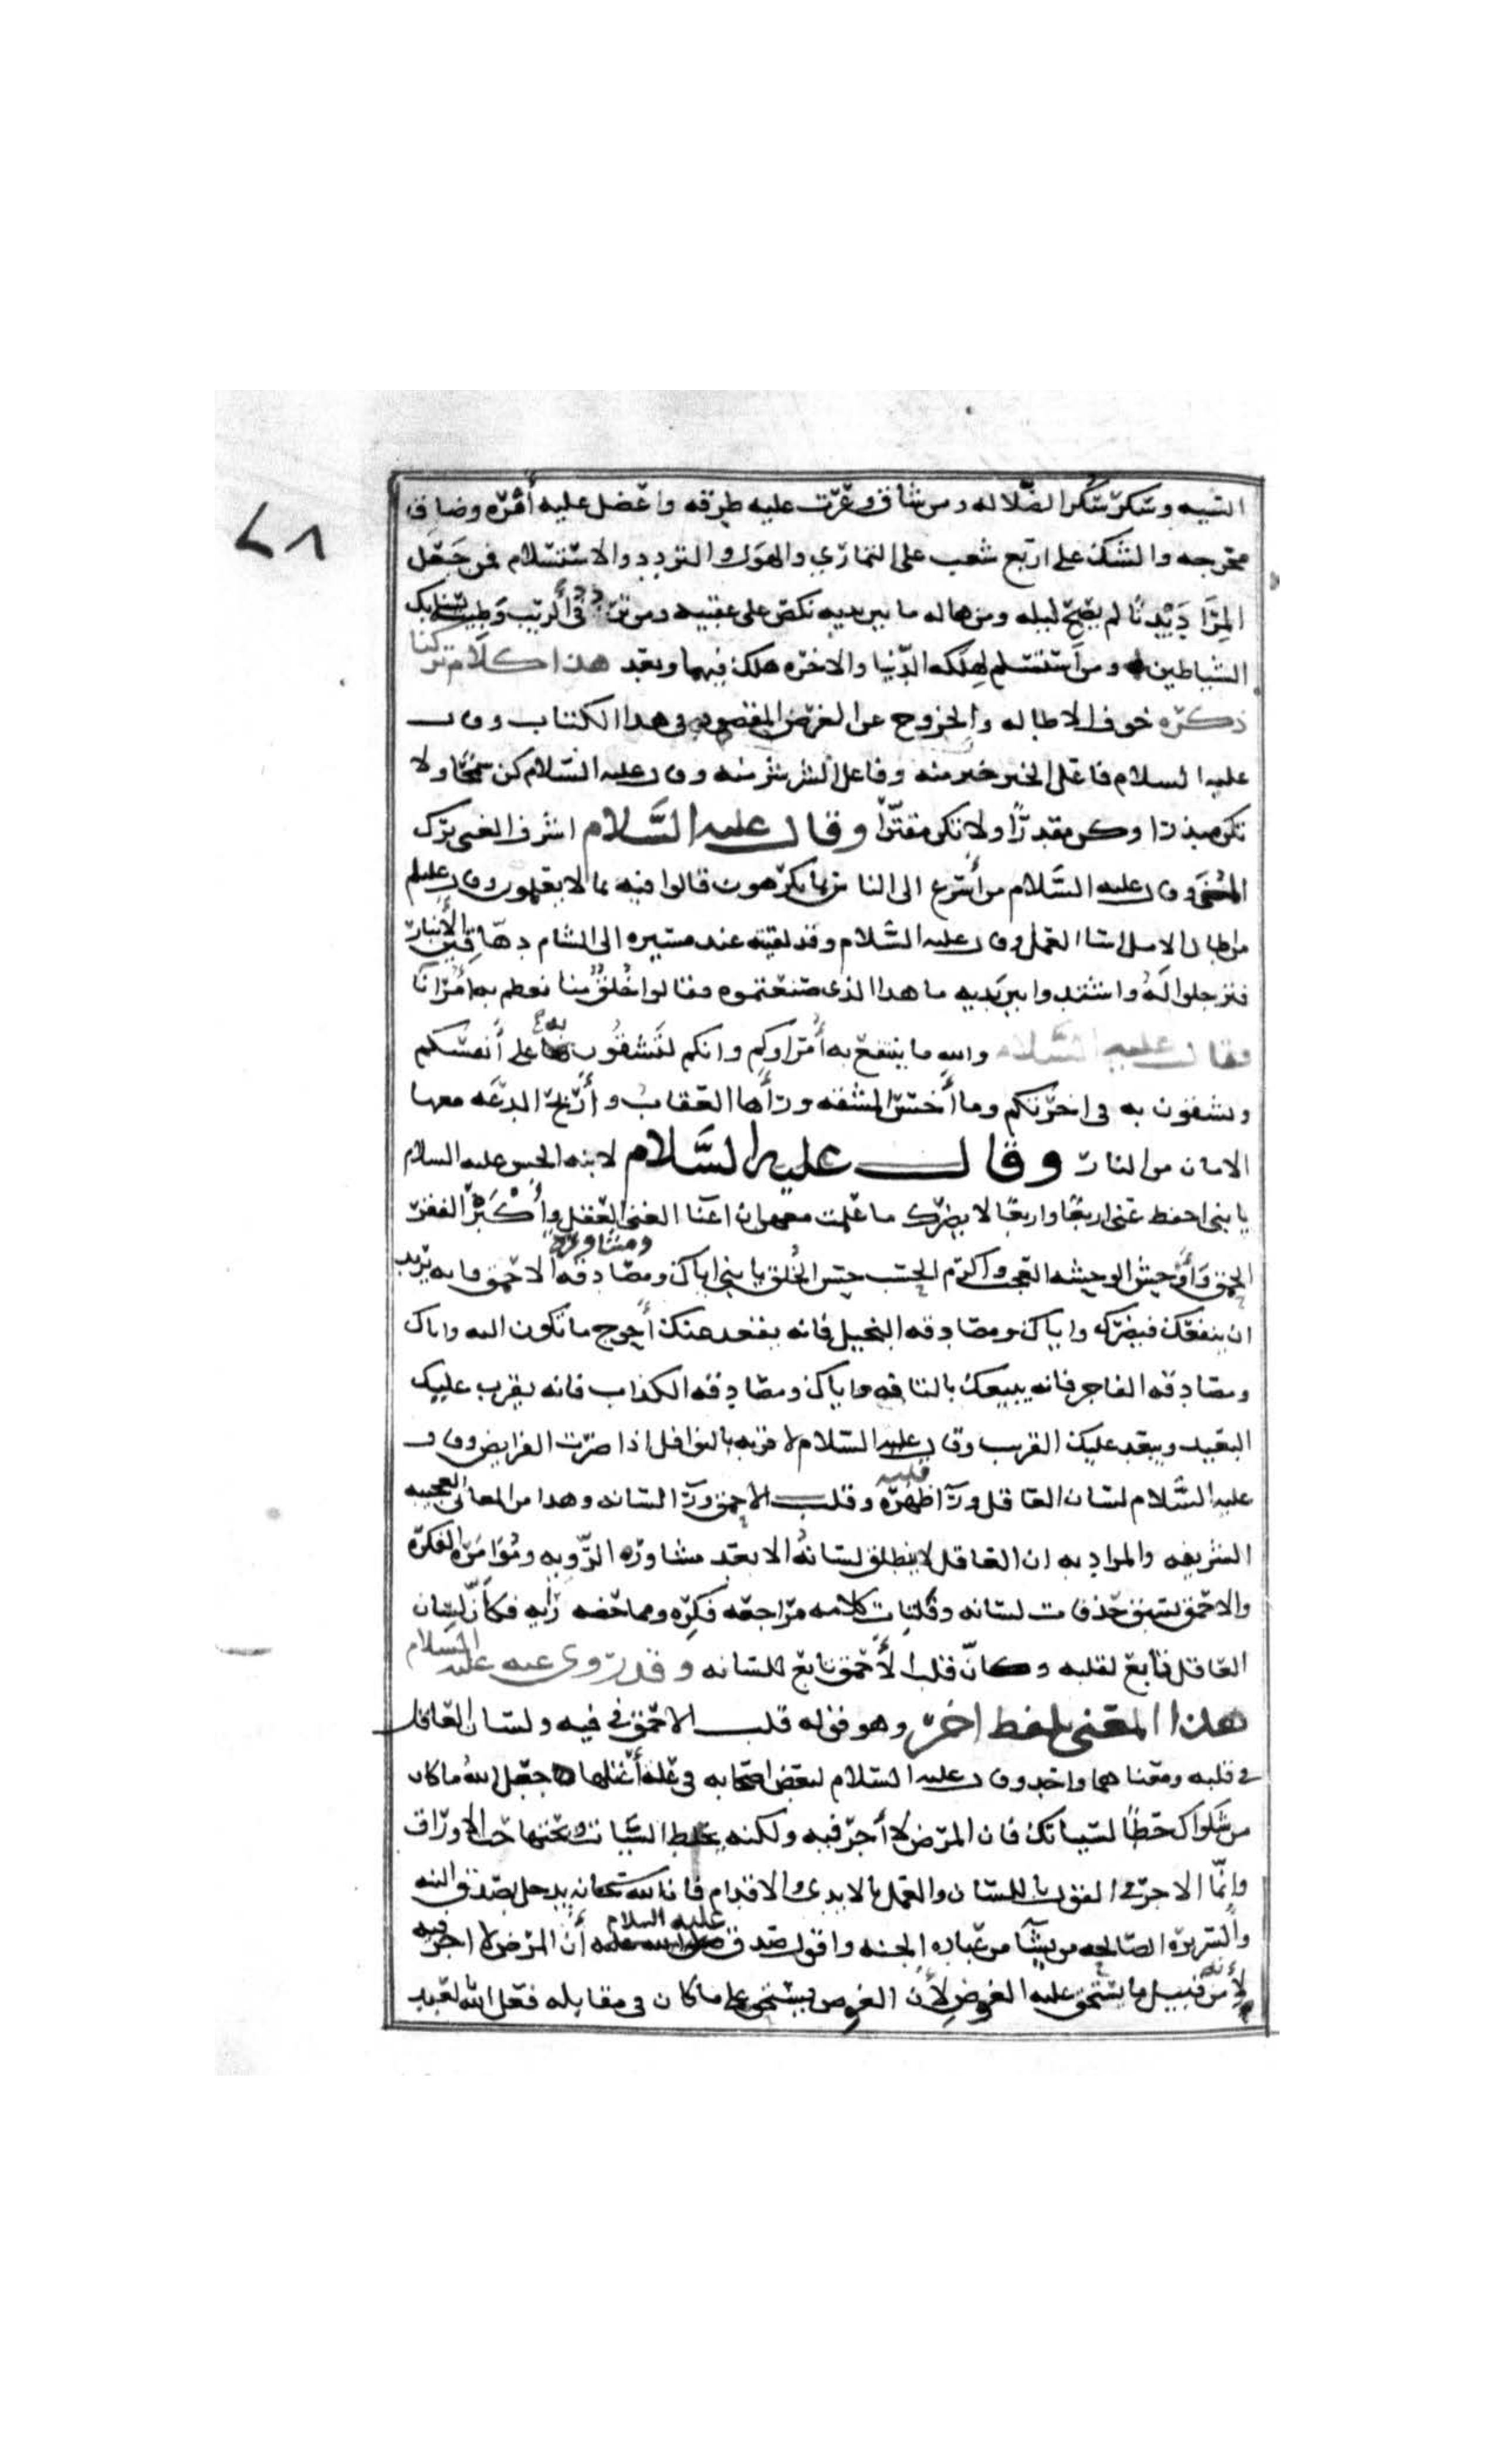 السيه وسكر سكر الضلاله ومن شاق وعرت عليه طرقه واعضل عليه أمره وضاق
مخرجه والشك على اربع شعب على التماري والهول والتردد والاستسلام فمن جعل
المرا ديدنًا لم يصبح ليله ومن هاله ما بين يديه نكص على عقبيه ومن تردد في الريب وطيته سنابك
الشياطين ومن استسلم لهلكه الدنيا والاخره هلك فيهما وبعد هذا كلام تركنا
ذكره خوف الاطاله والخروج عن الغرض المقصود في هذا الكتاب وقال
عليه السلام فاعل الخير خير منه وفاعل الشر شر منه وقال عليه السلام كن سمحًا ولا
تكن مبذرا وكن مقدرًا ولا تكن مقترًا وقال عليه السلام اشرف الغنى ترك
المنى وقال عليه السلام من أسرع الى الناس بما يكرهون قالوا فيه بما لا يعلمون وقال عليه السلم
من اطال الامل اسا العمل وقال عليه السلام وقد لقيه عند مسيره الى الشام دهاقين الأنبار
فترجلوا له واشتدوا بين يديه ما هذا الذي صنعتموه فقالوا خُلُقٌ منا نعظم به أمرانا
فقال عليه السلام والله ما ينتفع به أمراوكم وانكم لتشقون به على أنفسكم
وتشقون به في اخرتكم وما أخسر المشقه ورأها العقاب وأربح الدعه معها
الامان من النار وقال عليه السلام لابنه الحسن عليه السلام
يا بني احفظ عني اربعًا واربعًا لا يضرك ما عملت معهن ان اغنا الغنى العقل وأكبر الفقر
الحمق وأوحش الوحشه العجب واكرم الحسب حسن الخُلق يا بني اياك ومصادقه ومشاوره الاحمق فانه يريد
ان ينفعك فيضرك واياك ومصادقه البخيل فانه يقعد عنك أحوج ما تكون اليه واياك
ومصادقه الفاجر فانه يبيعك بالتافه واياك ومصادقه الكذاب فانه يقرب عليك
البعيد ويبعد عليك القريب وقال عليه السلام لا قربه بالنوافل اذا اضرت الفرايض وقال
عليه السلام لسان العاقل ورآ قلبه وقلب الاحمق ورآ لسانه وهذا من المعاني العجيبه
الشريفه والمراد به ان العاقل لا يطلق لسانهُ الا بعد مشاوره الرّويه ومُوامره الفكره
والاحمق تسبق حذفات لسانه وفلتات كلامه مراجعه فكره ومماخضه رايه فكأن لسان
العاقل تابع لقلبه وكان قلب الأحمق تابع للسانه وقد روى عنه عليه السلام
هذا المعنى بلفظ اخر وهو قوله قلب الاحمق في فيه ولسان العاقل
في قلبه ومعناهما واحد وقال عليه السلام لبعض اصحابه في علة أعتلها جعل الله ما كان
من شكواك حطًا لسيياتك فان المرض لا أجر فيه ولكنه يحط السيات ويحتها حت الاوراق
وانما الاجر في القول باللسان والعمل بالايدي والاقدام فان الله سبحانه يدخل بصدق النيه
والسريره الصالحه من يشآ من عباده الجنه واقول صدق عليه السلام أن المرض لا اجر فيه
لأنه من قبيل ما يستحق عليه العوض لأن العوض يستحق على ما كان في مقابله فعل الله لعبد
٧٨